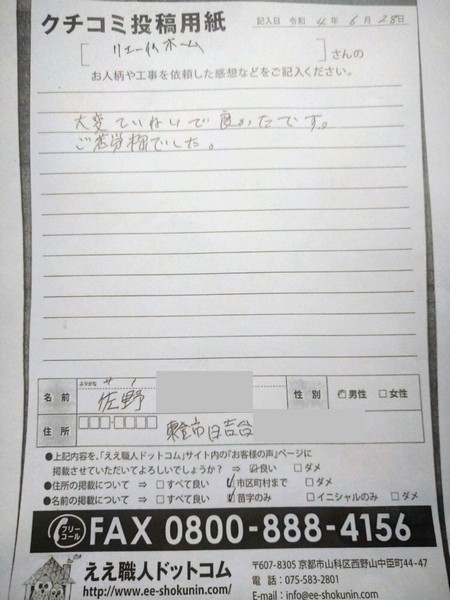 クチコミ投稿用紙
記入日 令和 4 年 6 月 28 日
[ リェイルホーム ] さんの
お人柄や工事を依頼した感想などをご記入ください。
大変ていねいで良かったです。
ご苦労様でした。
ふりがな サノ
名前 佐野
性別 ☑男性 □女性
住所 東金市日吉台
●上記内容を、「ええ職人ドットコム」サイト内の『お客様の声』ページに
掲載させていただいてよろしいでしょうか? ⇒ ☑良い □ダメ
●住所の掲載について ⇒ □すべて良い ☑市区町村まで □ダメ
●名前の掲載について ⇒ □すべて良い ☑苗字のみ □イニシャルのみ □ダメ
フリーコール FAX 0800-888-4156
ええ職人ドットコム
http://www.ee-shokunin.com/
〒607-8305 京都市山科区西野山中臣町44-47
電話:075-583-2801
E-mail:info@ee-shokunin.com